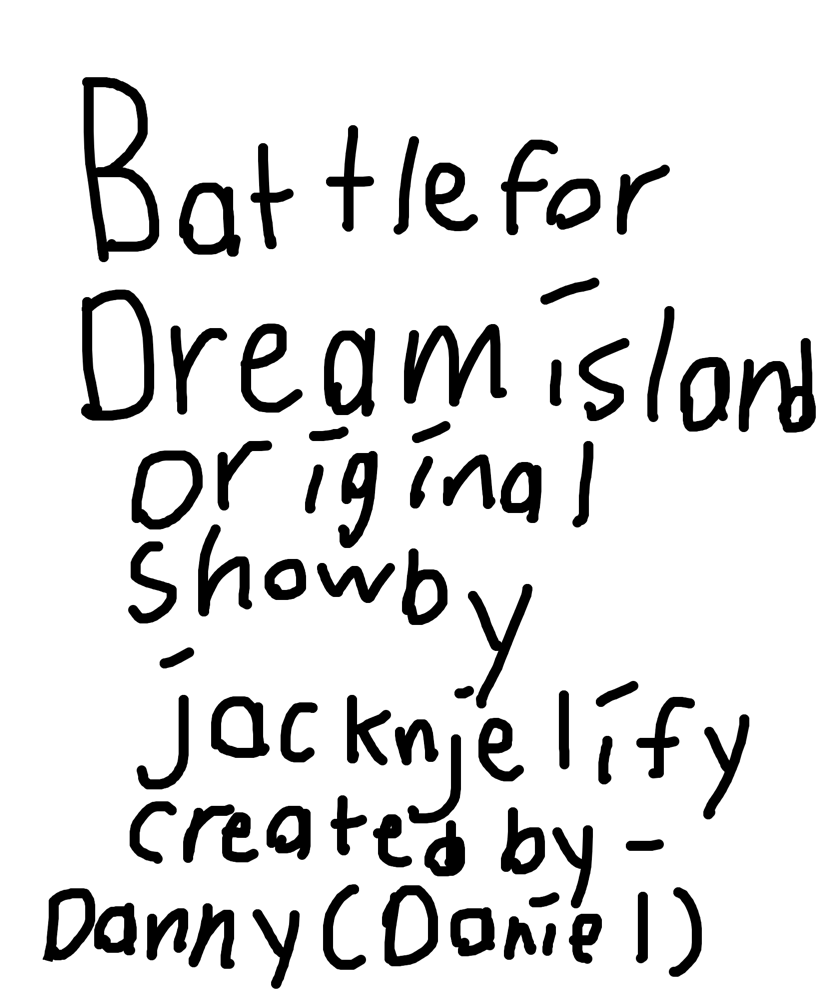 Battle for
Dream island
original
show by
jacknjelify
created by -
Danny (Daniel)